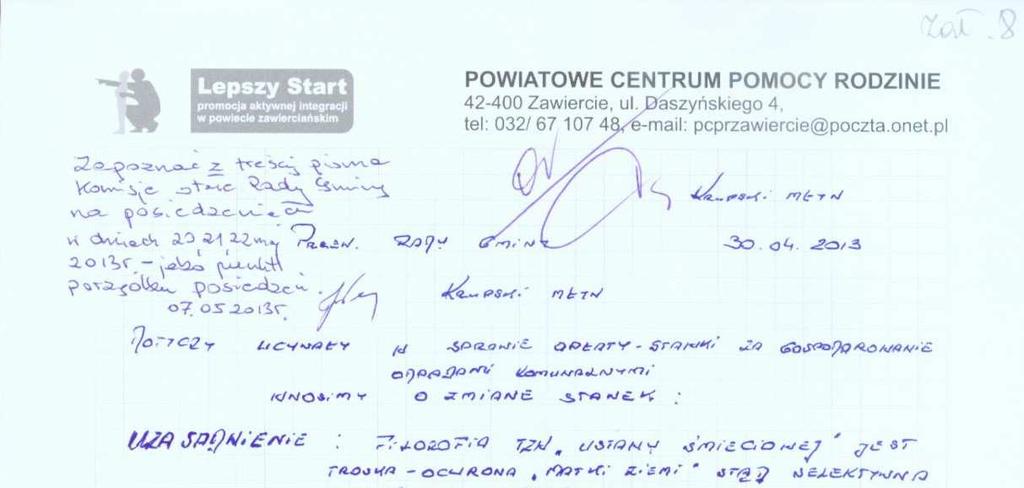 Zał. 8
Lepszy Start
promocja aktywnej integracji
w powiecie zawierciańskim
POWIATOWE CENTRUM POMOCY RODZINIE
42-400 Zawiercie, ul. Daszyńskiego 4,
tel: 032/ 67 107 48, e-mail: pcprzawiercie@poczta.onet.pl
Zapoznać z treścią pisma
Komisje stałe Rady Gminy
na posiedzeniach
w dniach 20 21 22 maj
2013r. - jako punkt
porządku posiedzeń.
07.05.2013r.
KRUPSKI MŁYN
30.04.2013
PRZEW. RADY GMINY
KRUPSKI MŁYN
DOTYCZY UCHWAŁY W SPRAWIE OPŁATY - STAWKI ZA GOSPODAROWANIE
ODPADAMI KOMUNALNYMI
WNOSIMY O ZMIANE STAWEK :
UZASADNIENIE : FILOZOFIA TZW. USTAWY ŚMIECIOWEJ" JEST
TROSKA - OCHRONA "MATKI ZIEMI" STĄD SELEKTYWNA